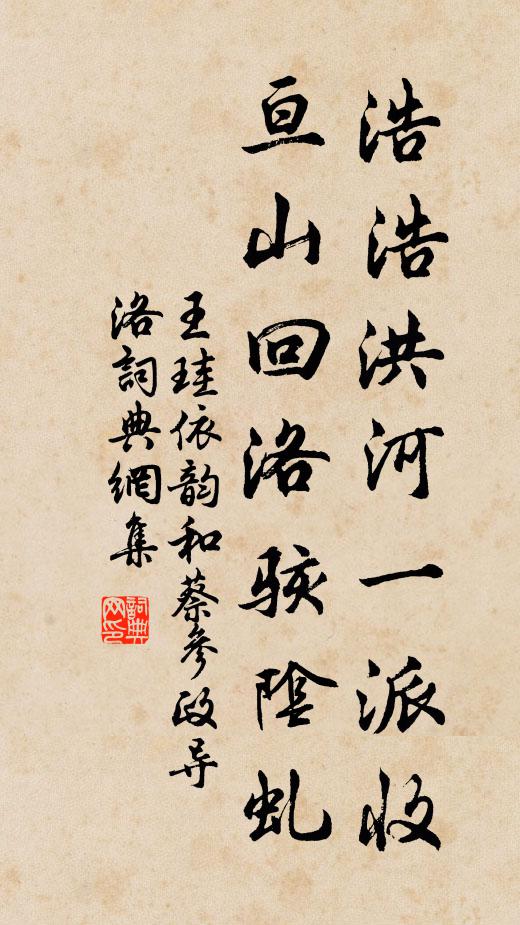 浩浩洪河一派收
亘山回洛駭陰虬
王珪依韵和蔡参政导
洛詞典網集
詞典网印